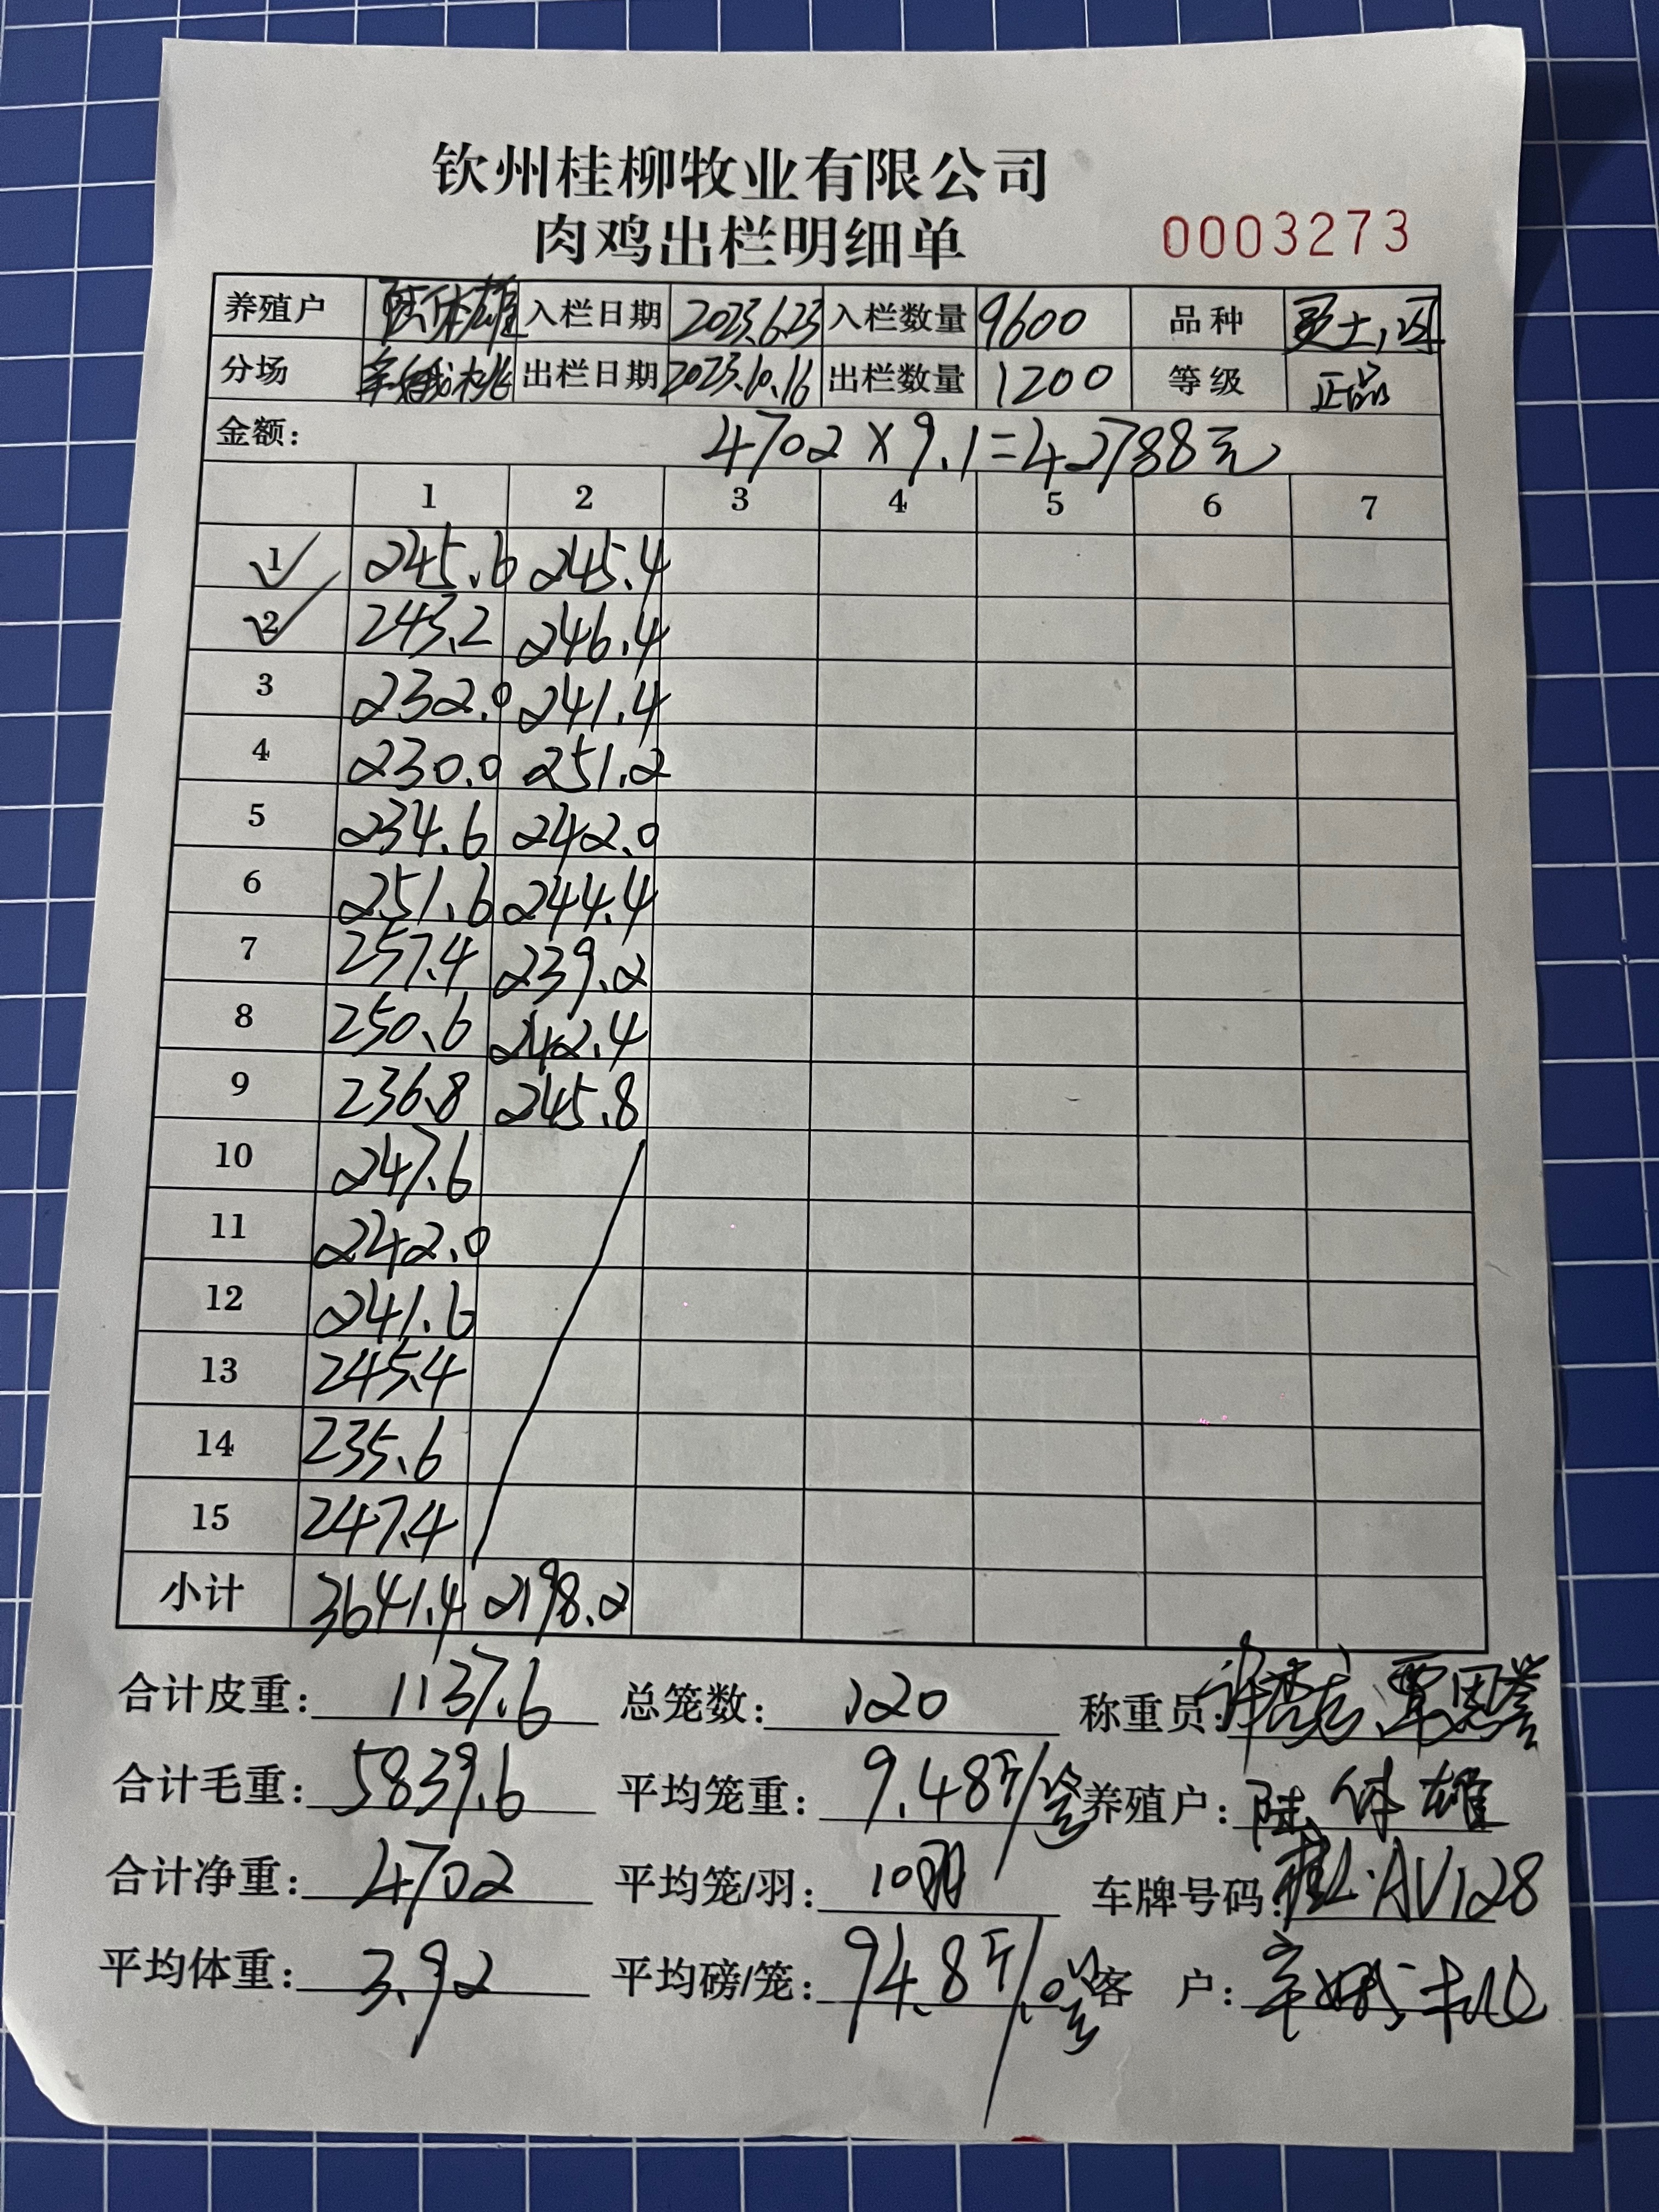 钦州桂柳牧业有限公司
肉鸡出栏明细单 0003273
养殖户 入栏日期 2023.6.23 入栏数量 9600 品种
分场 出栏日期 2023.10.16 出栏数量 1200 等级 正品
金额: 4702×9.1=42788元
1 2 3 4 5 6 7
1 245.6 245.4
2 243.2 246.4
3 232.0 241.4
4 230.0 251.2
5 234.6 242.0
6 251.6 244.4
7 257.4 239.2
8 250.6 242.4
9 236.8 245.8
10 247.6
11 242.0
12 241.6
13 245.4
14 235.6
15 247.4
小计 3641.4 2198.2
合计皮重: 1137.6 总笼数: 120 称重员:
合计毛重: 5839.6 平均笼重: 9.48斤/笼 养殖户: 陆体雄
合计净重: 4702 平均笼/羽: 10羽 车牌号码: 桂L·AV128
平均体重: 3.92 平均磅/笼: 94.8斤/笼 客户: